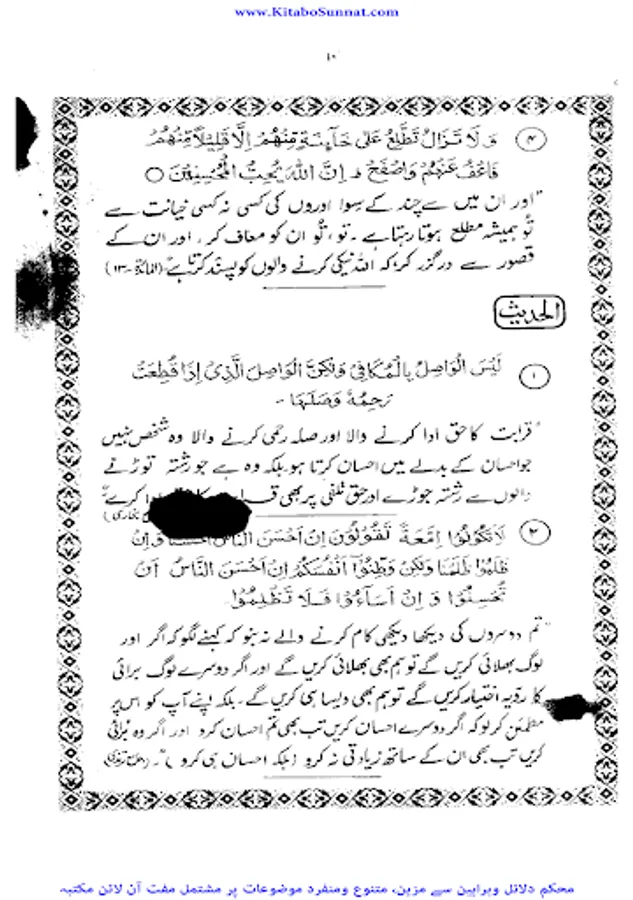 www.KitaboSunnat.com
۱۰
۴ وَلَا تَزَالُ تَطَّلِعُ عَلٰى خَآئِنَةٍ مِّنْهُمْ اِلَّا قَلِيْلًا مِّنْهُمْ
فَاعْفُ عَنْهُمْ وَاصْفَحْ ط اِنَّ اللّٰهَ يُحِبُّ الْمُحْسِنِيْنَ ○
"اور ان میں سے چند کے سوا اوروں کی کسی نہ کسی خیانت سے
تُو ہمیشہ مطلع ہوتا رہتا ہے۔ تو، تُو ان کو معاف کر، اور ان کے
قصور سے درگزر کر، کہ اللہ نیکی کرنے والوں کو پسند کرتا ہے" (المائدۃ-۱۳)
الحدیث
۱ لَيْسَ الْوَاصِلُ بِالْمُكَافِئِ وَلٰكِنَّ الْوَاصِلَ الَّذِيْ اِذَا قُطِعَتْ
رَحِمُهٗ وَصَلَهَا -
"قرابت کا حق ادا کرنے والا اور صلہ رحمی کرنے والا وہ شخص نہیں
جو احسان کے بدلے میں احسان کرتا ہو۔ بلکہ وہ ہے جو رشتہ توڑنے
والوں سے رشتہ جوڑے اور حق تلفی پر بھی ادا کرے"
بخاری)
۲ لَا تَكُوْنُوْا اِمَّعَةً تَقُوْلُوْنَ اِنْ اَحْسَنَ النَّاسُ اَحْسَنَّا وَاِنْ
ظَلَمُوْا ظَلَمْنَا وَلٰكِنْ وَطِّنُوْٓا اَنْفُسَكُمْ اِنْ اَحْسَنَ النَّاسُ اَنْ
تُحْسِنُوْا وَاِنْ اَسَآءُوْا فَلَا تَظْلِمُوْا۔
"تم دوسروں کی دیکھا دیکھی کام کرنے والے نہ بنو کہ کہنے لگو کہ اگر اور
لوگ بھلائی کریں گے تو ہم بھی بھلائی کریں گے اور اگر دوسرے لوگ برائی
کا رویہ اختیار کریں گے تو ہم بھی ویسا ہی کریں گے۔ بلکہ اپنے آپ کو اس پر
مطمئن کر لو کہ اگر دوسرے احسان کریں تب بھی تم احسان کرو اور اگر وہ برائی
کریں تب بھی ان کے ساتھ زیادتی نہ کرو (بلکہ احسان ہی کرو)"۔
محکم دلائل وبراہین سے مزین، متنوع ومنفرد موضوعات پر مشتمل مفت آن لائن مکتبہ